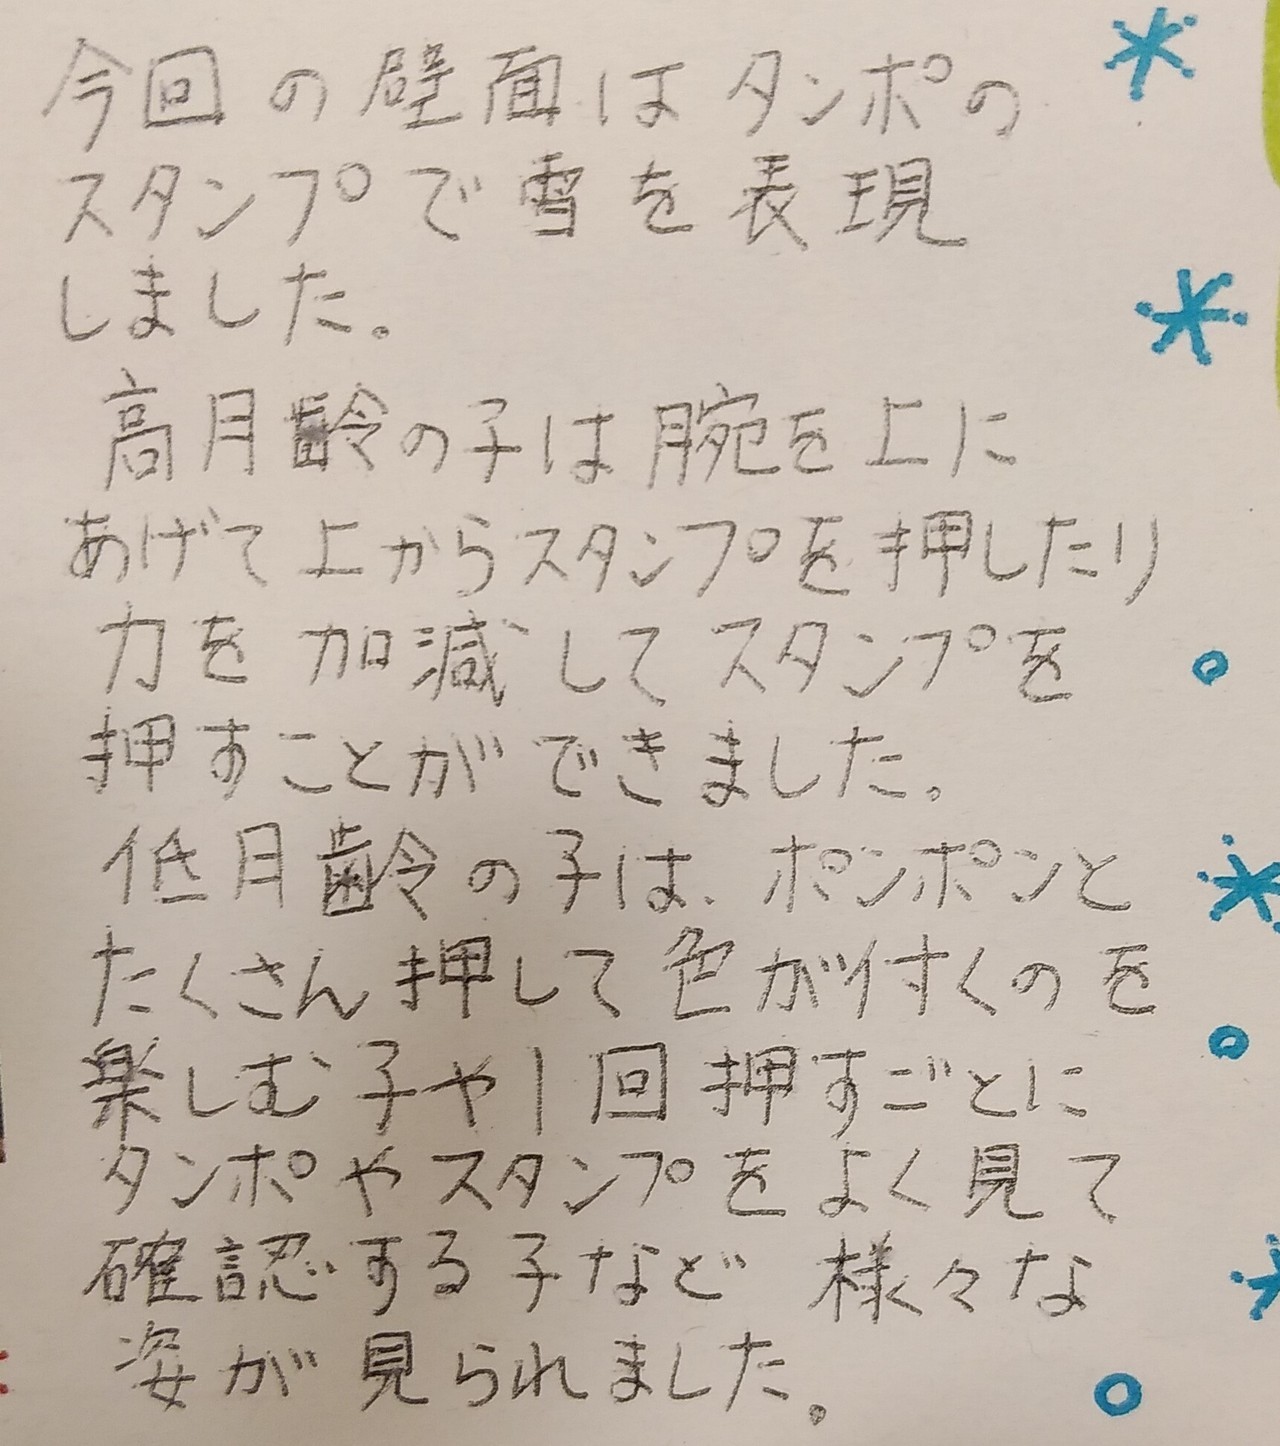 今回の壁面はタンポの
スタンプで雪を表現
しました。
高月齢の子は腕を上に
あげて上からスタンプを押したり
力を加減してスタンプを
押すことができました。
低月齢の子は、ポンポンと
たくさん押して色が付くのを
楽しむ子や1回押すごとに
タンポやスタンプをよく見て
確認する子など様々な
姿が見られました。